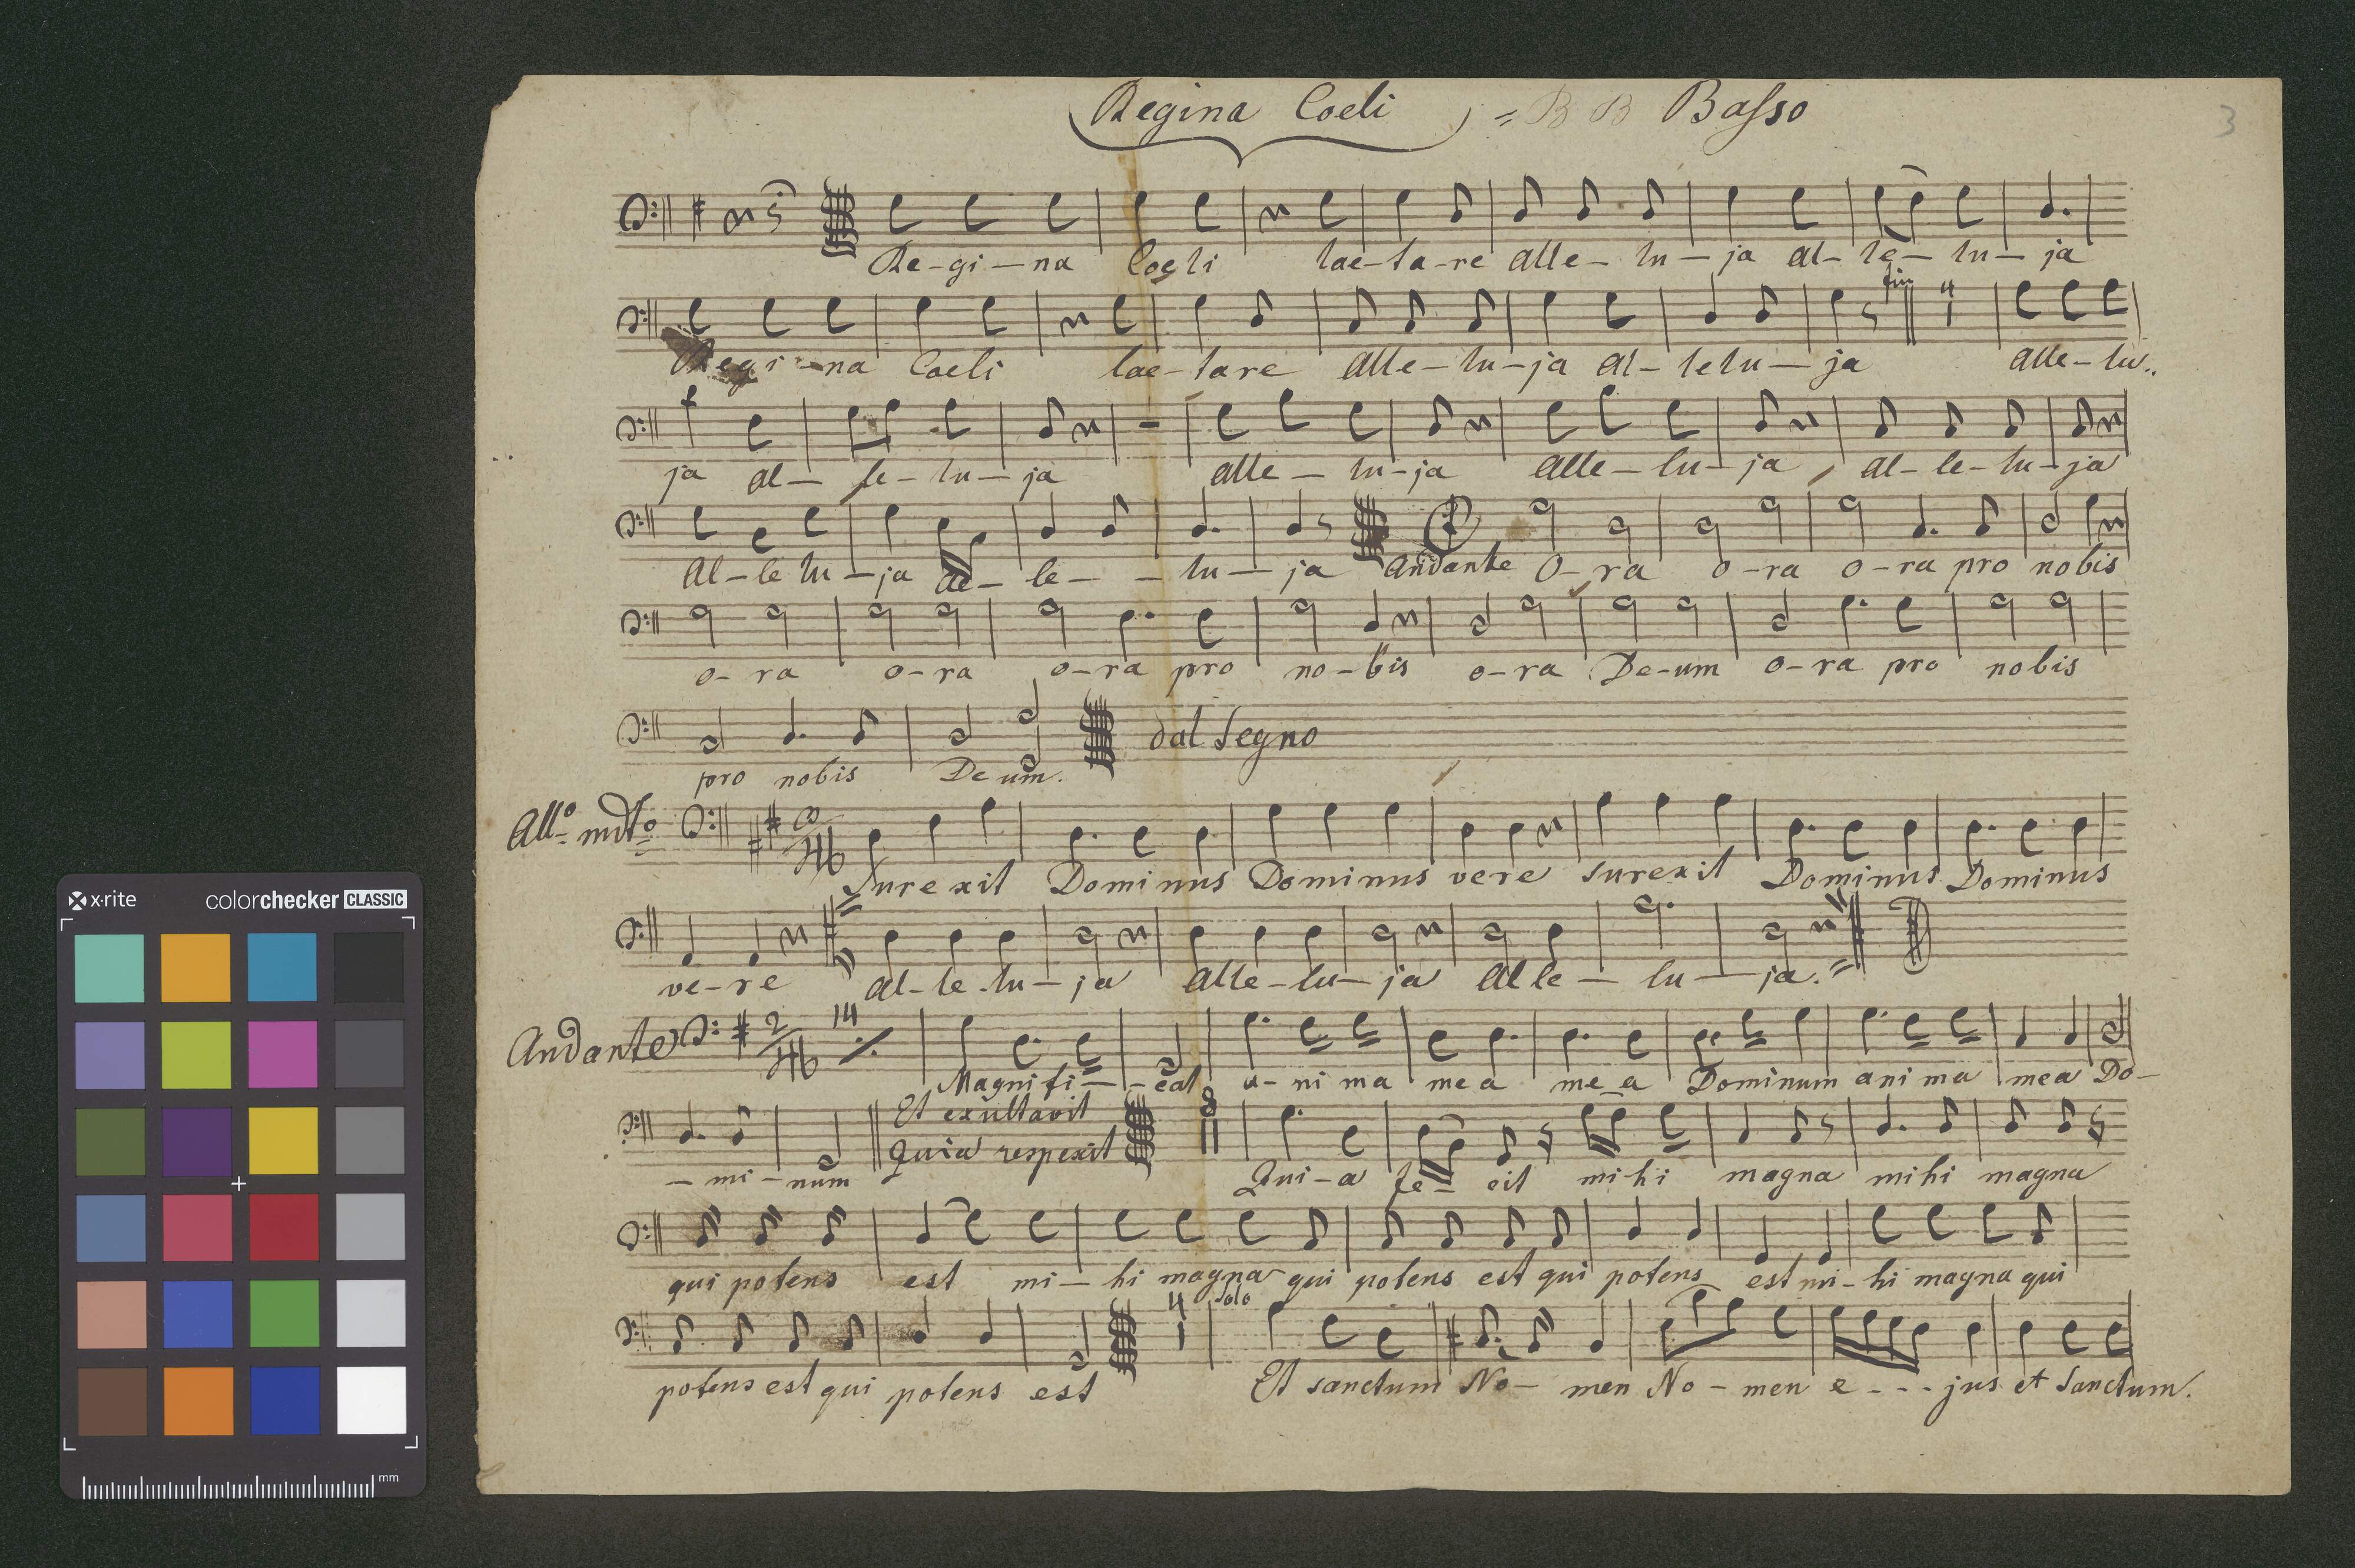 Regina Coeli = B B Basso
3
Re-gi-na Coeli lae-ta-re alle-lu-ja al-le-lu-ja
fin 4
Regi-na Coeli lae-tare alle-lu-ja al-lelu-ja alle-lu..
ja al-le-lu-ja alle-lu-ja alle-lu-ja al-le-lu-ja
Al-le lu-ja al-le--lu-ja Andante O-ra o-ra o-ra pro nobis
o-ra o-ra o-ra pro no-bis o-ra De-um o-ra pro nobis
dal Segno
pro nobis De um.
All.o mdt.o
Surexit Dominus Dominus vere surexit Dominus Dominus
ve-re al-le-lu-ja alle-lu-ja alle-lu-ja.
Andante 2 14
Magnifi--cat a-ni ma mea me a Dominum ani ma mea Do-
Et exultavit 8
Quia respexit
-mi-num Qui-a fe-cit mi-hi magna mihi magna
qui potens est mi-hi magna qui potens est qui potens est mi-hi magna qui
4 solo
potens est qui potens est Et sanctum No-men No-men e---jus et Sanctum.
x-rite colorchecker CLASSIC
mm